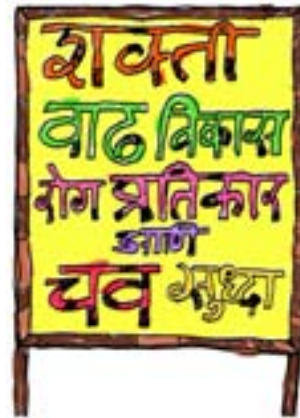 शक्ती
वाढ विकास
रोग प्रतिकार
आणि
चव सुध्दा